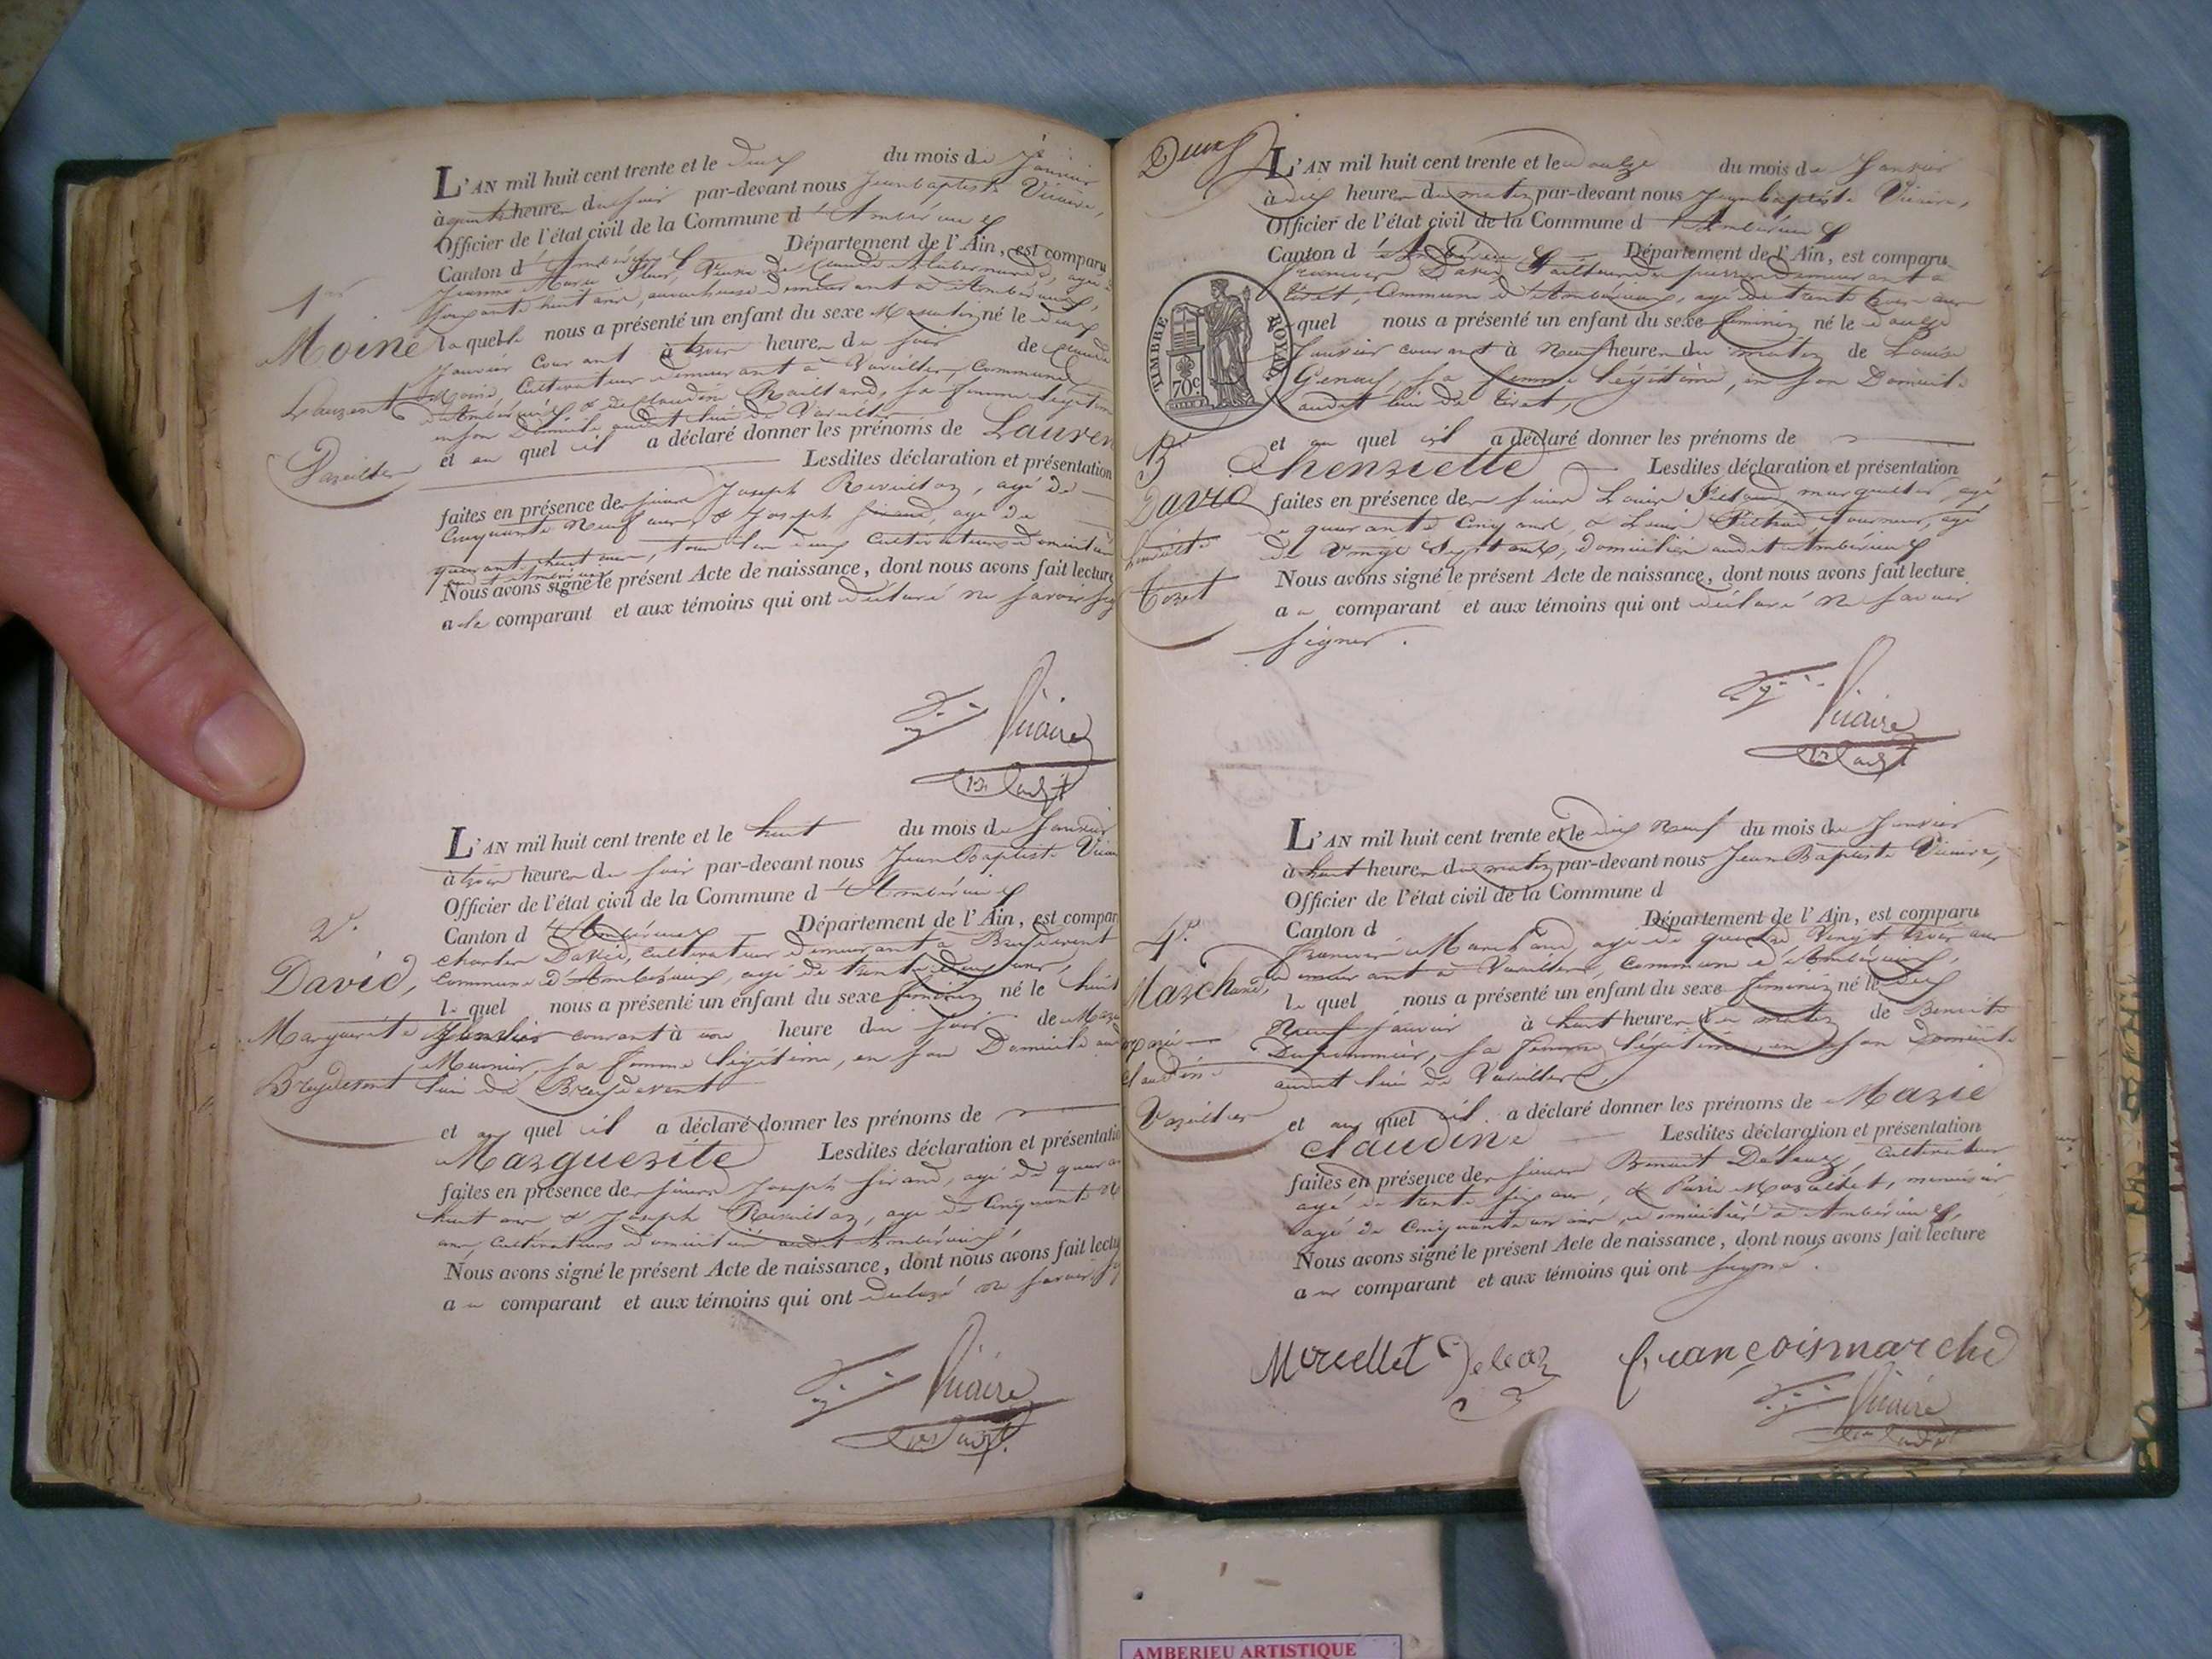 L'AN mil huit cent trente et le deux du mois de Janvier
à quatre heures du soir par-devant nous Jean baptiste Vicaire,
Officier de l'état civil de la Commune d'Ambérieux
Canton d'Ambérieux Département de l'Ain, est comparu
Jeanne Marie veuve de Claude agée de
soixante huit ans, accoucheuse demeurant à Ambérieux,
1er
Moine
Laurent
Vareilles
laquelle nous a présenté un enfant du sexe Masculin né le deux
Janvier courant à trois heures du soir de Claude
Moine, Cultivateur demeurant à Vareilles, Commune
d'Ambérieux & de Claudine sa femme légitime
en son Domicile audit lieu de Vareilles
et au quel il a déclaré donner les prénoms de Lauren
Lesdites déclaration et présentation
faites en présence des sieurs Joseph Revillon, agé de
Cinquante Neuf ans, & Joseph Sirand, agé de
quarante huit ans, tous les deux Cultivateurs domiciliés
audit Ambérieux
Nous avons signé le présent Acte de naissance, dont nous avons fait lecture
a la comparant et aux témoins qui ont déclaré ne savoir sig
Vicaire
L'AN mil huit cent trente et le huit du mois de Janvier
à trois heures du soir par-devant nous Jean Baptiste Vicai
Officier de l'état civil de la Commune d'Ambérieux
Canton d'Ambérieux Département de l'Ain, est compar
2e
David,
Marguerite
Breydevent
Charles David, cultivateur demeurant à Breydevent
Commune d'Ambérieux, agé de trente deux ans,
le quel nous a présenté un enfant du sexe féminin né le huit
Janvier courant à une heure du soir de Marie
Meunier, sa femme légitime, en son Domicile au
lieu de Breydevent
et au quel il a déclaré donner les prénoms de
Marguerite Lesdites déclaration et présentatio
faites en présence des sieurs Joseph Sirand, agé de quara
huit ans & Joseph Revillon, agé de Cinquante N
ans, Cultivateurs domiciliés audit Ambérieux,
Nous avons signé le présent Acte de naissance, dont nous avons fait lectu
a u comparant et aux témoins qui ont déclaré ne savoir
Vicaire
Deux
L'AN mil huit cent trente et le douze du mois de Janvier
à dix heures du matin par-devant nous Jean baptiste Vicaire,
Officier de l'état civil de la Commune d'Ambérieux
Canton d'Ambérieux Département de l'Ain, est comparu
François David Tailleur de pierre demeurant à
Tiret, Commune d'Ambérieux, agé de trente trois ans
TIMBRE ROYAL
70c
quel nous a présenté un enfant du sexe féminin né le douze
Janvier courant à Neuf heures du matin de Louise
Genaux, sa femme légitime, en son Domicile
audit lieu de Tiret,
3e
David
henriette
Tiret
et au quel il a déclaré donner les prénoms de
henriette Lesdites déclaration et présentation
faites en présence des sieurs Louis marguiller, agé
de quarante Cinq ans, & Louis tourneur, agé
de Vingt Sept ans, domiciliés audit Ambérieux
Nous avons signé le présent Acte de naissance, dont nous avons fait lecture
a u comparant et aux témoins qui ont déclaré ne savoir
signer.
Vicaire
L'AN mil huit cent trente et le dix Neuf du mois de Janvier
à huit heures du matin par-devant nous Jean Baptiste Vicaire,
Officier de l'état civil de la Commune d
Canton d Département de l'Ain, est comparu
4e
Marchand,
Marie
Claudine
Vareilles
François Marchand, agé de quatre Vingt trois ans
demeurant à Vareilles, Commune d'Ambérieux,
le quel nous a présenté un enfant du sexe féminin né le dix
Neuf Janvier à huit heures du matin de Benoite
sa femme légitime, en son Domicile
audit lieu de Vareilles,
et au quel il a déclaré donner les prénoms de Marie
Claudine Lesdites déclaration et présentation
faites en présence des sieurs Benoit Cultivateur
agé de trente six ans, & Pierre menuisier
agé de Cinquante un ans, domiciliés à Ambérieux,
Nous avons signé le présent Acte de naissance, dont nous avons fait lecture
a u comparant et aux témoins qui ont signé.
françoismarchd
Vicaire
AMBERIEU ARTISTIQUE